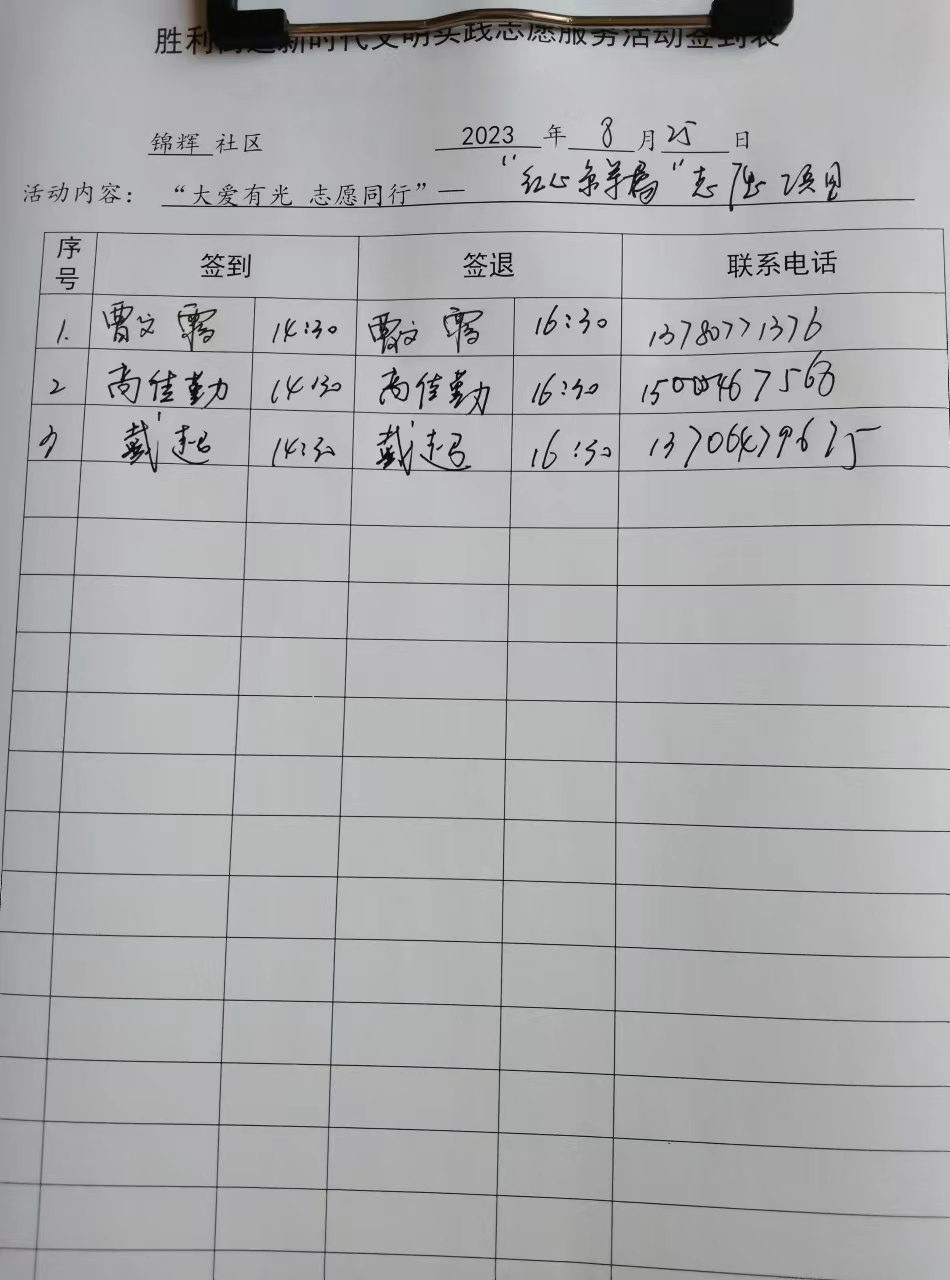 胜利街道新时代文明实践志愿服务活动签到表
锦辉 社区 2023 年 8 月 25 日
活动内容： “大爱有光 志愿同行”— “红心 ”志愿项目
序号 签到 签退 联系电话
1. 曹文霞 14:30 曹文霞 16:30 13780771376
2 高佳勤 14:30 高佳勤 16:30
3 戴超 14:30 戴超 16:30 13706479675